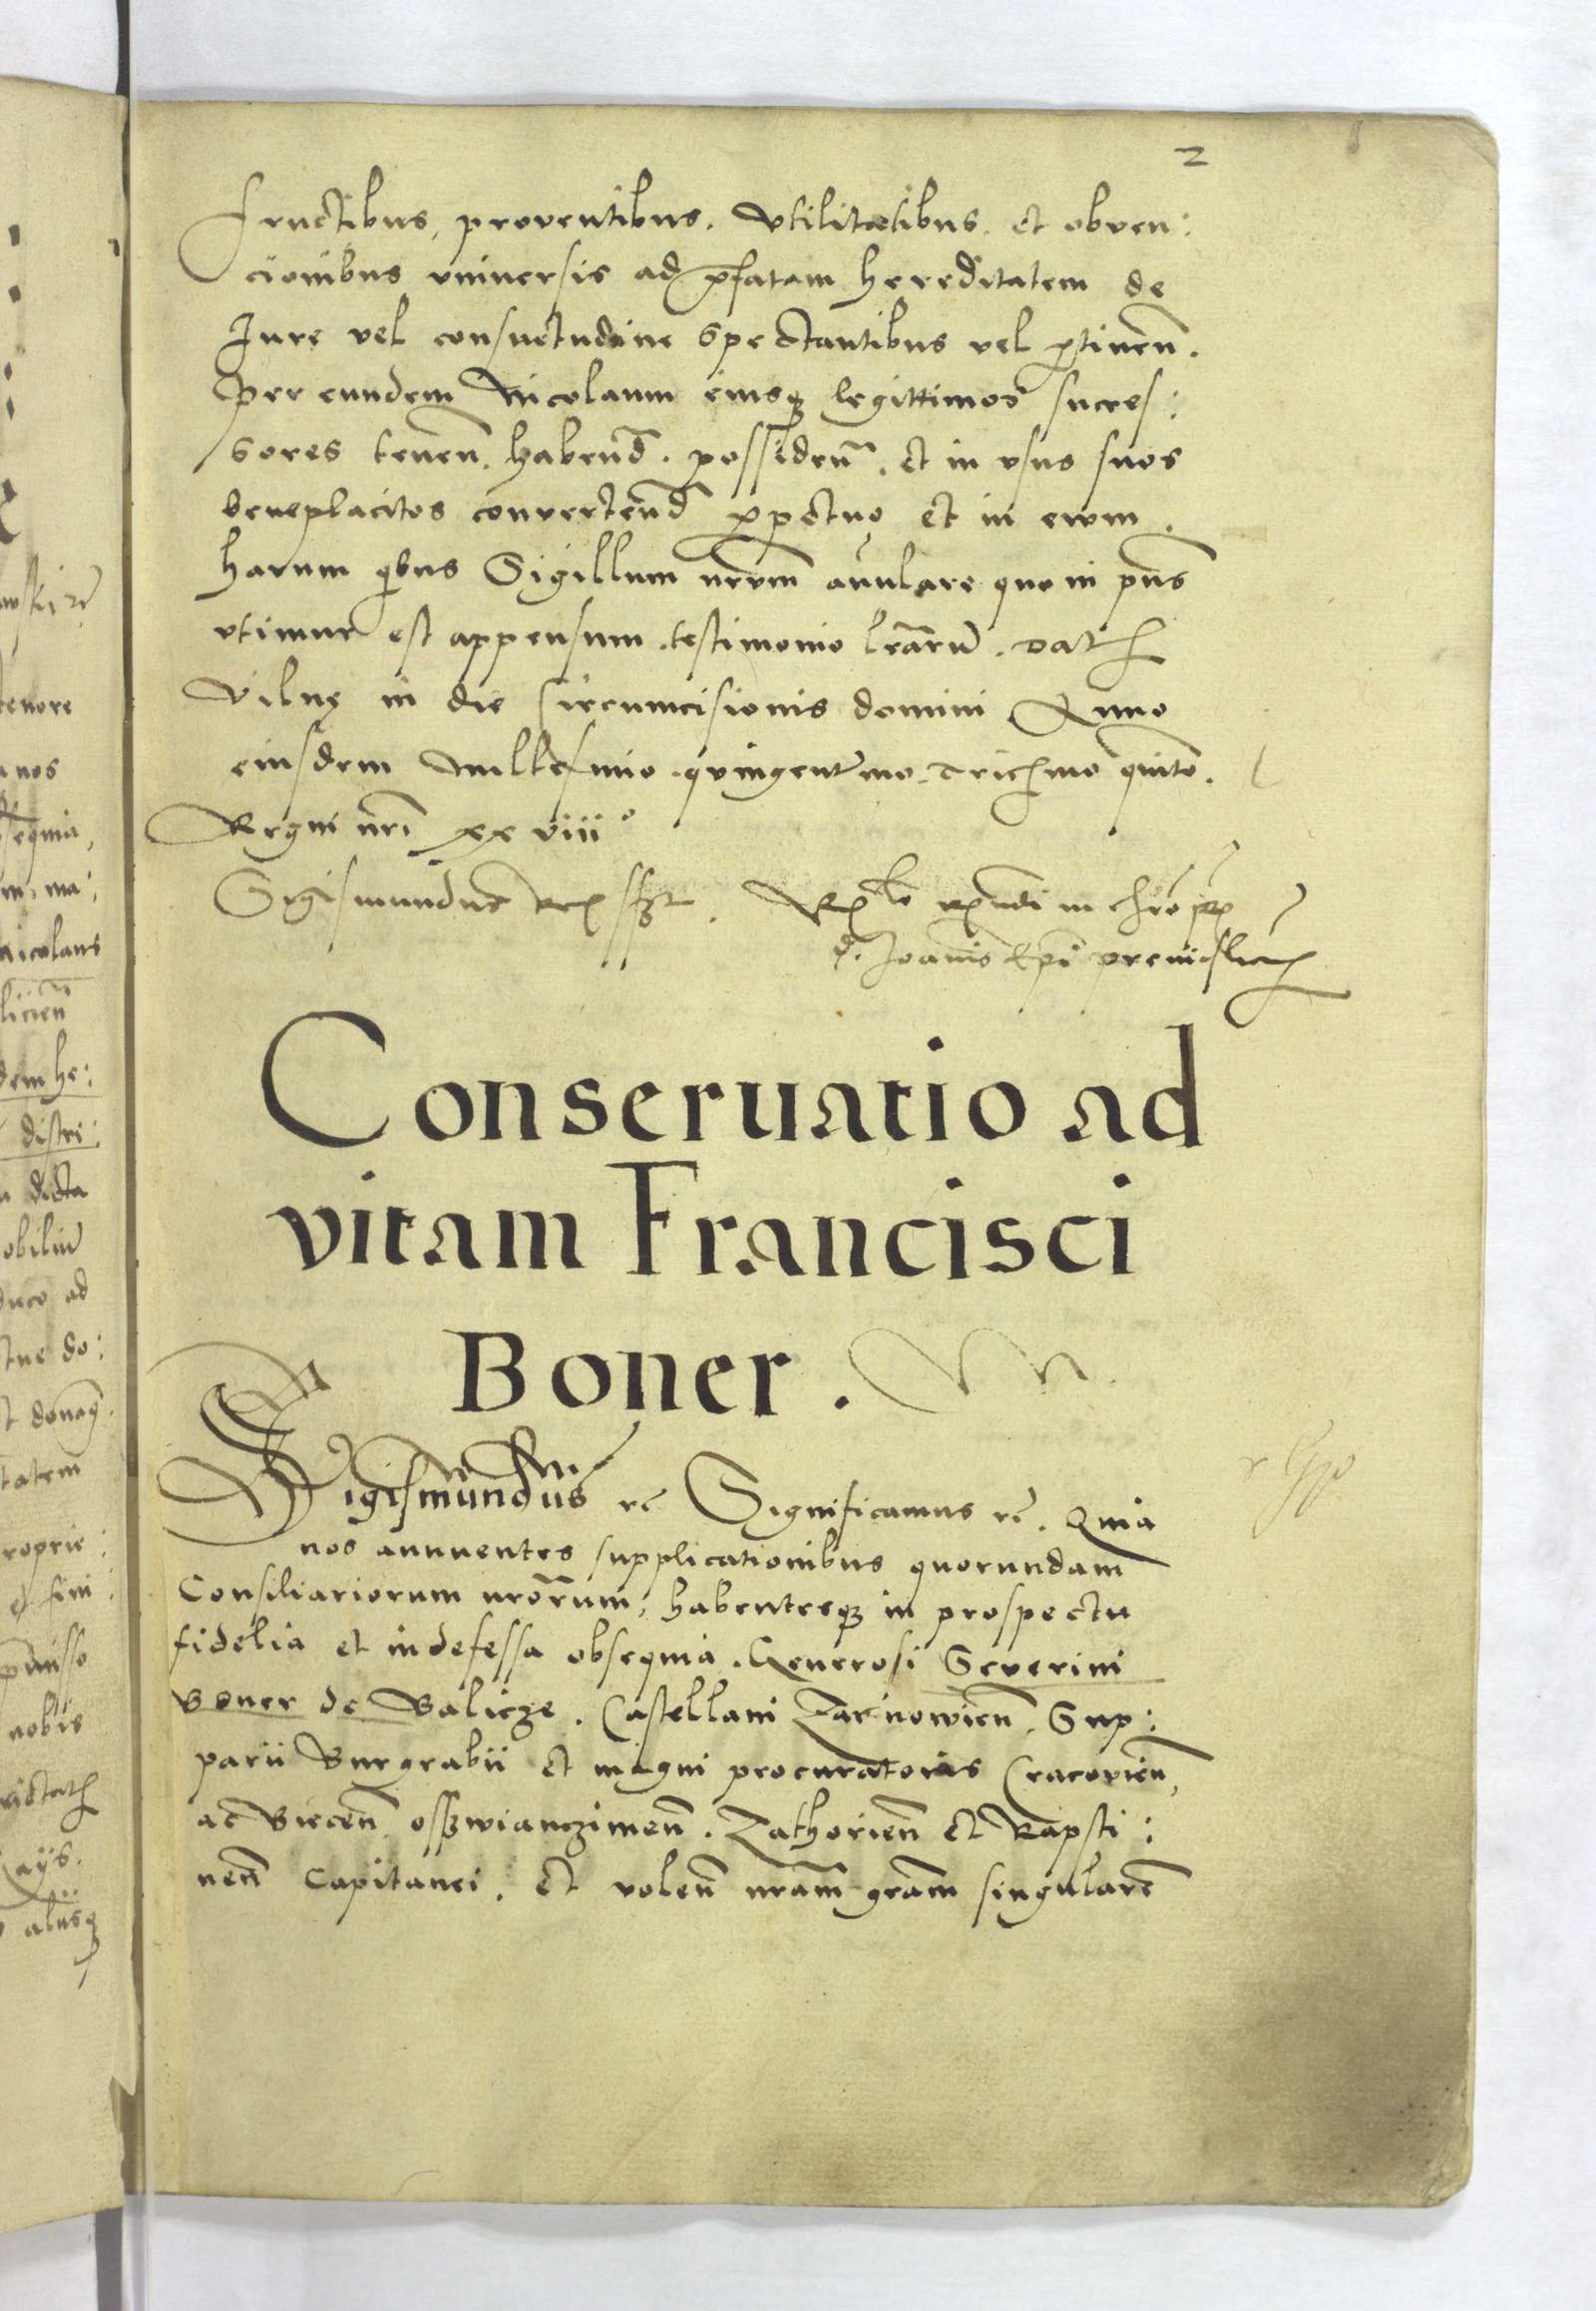 2
fructibus, proventibus. Vtilitatibus. et obven:
cionibus vniuersis ad p̄fatam hereditatem de
Iure vel consuetudine spectantibus vel ꝑtinen̄.
per eundem Nicolaum eiusqꝫ legittimos succes:
sores tenen̄. habend̄. possiden̄. et in vsus suos
beneplacitos convertend̄ ꝑpetuo et in ewm.
harum qͥbus Sigillum nr̄vm annulare quo in pn̄s
vtimur est appensum. testimonio lr̄arū. Dat
Vilnę in die Circumcisionis domini Anno
eiusdem millesimo. quingentmo. tricesmo quīto.
Regni nr̄i xx viiiº
Sigismundus Rex sszt. Rlo Rndi in chro pr
d. Joan̄is Epi premislien
Conseruatio ad
vitam Francisci
Boner.
Sigismundus rc̄ Significamus rc̄. Quia
nos annuentes supplicationibus quorundam
Consiliariorum nror̄um, habentesqꝫ in prospectu
fidelia et indefessa obsequia. Generosi Severini
Boner de Balicze. Castellani Zarnowien̄. Sup:
parii Burgrabii et magni procuratoris Cracovien̄,
ac Biecen̄ osswianczimen̄. Zathorien̄ et Rapsti:
nen̄ Capitanei. Et volen̄ nr̄am gr̄am singularē